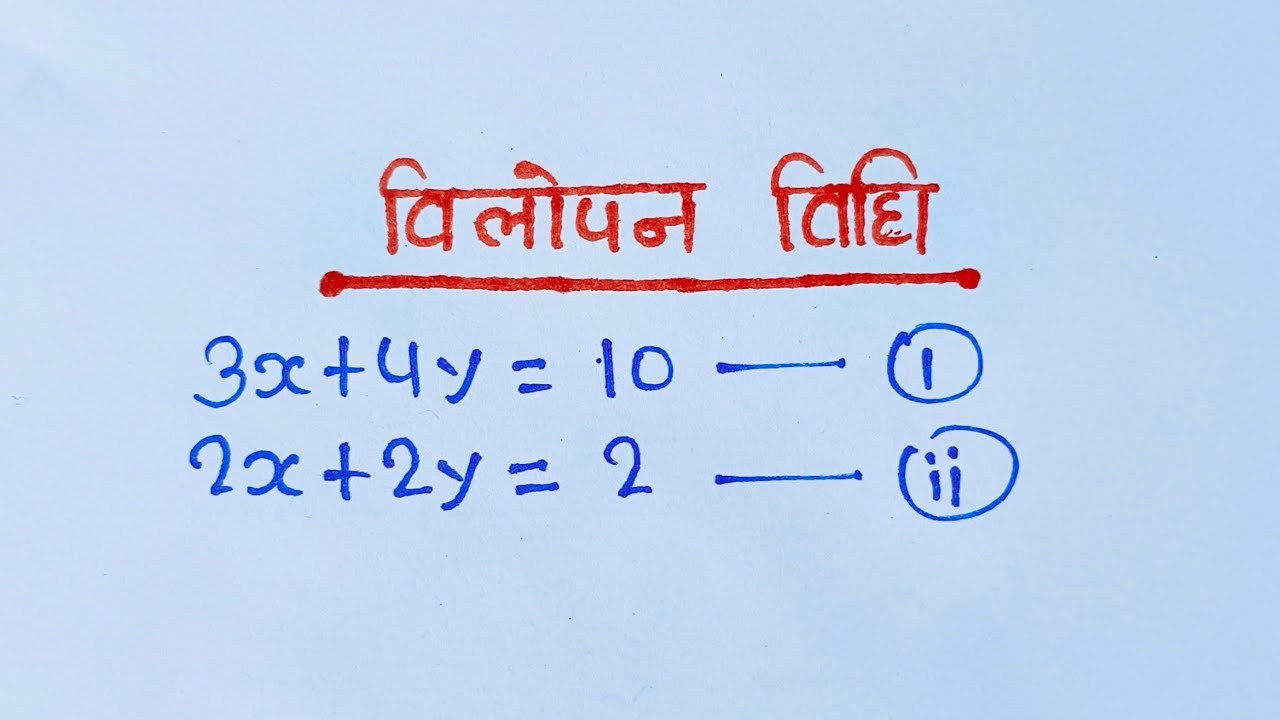 विलोपन तिद्यि
3x+4y = 10 — (i)
2x+2y = 2 — (ii)